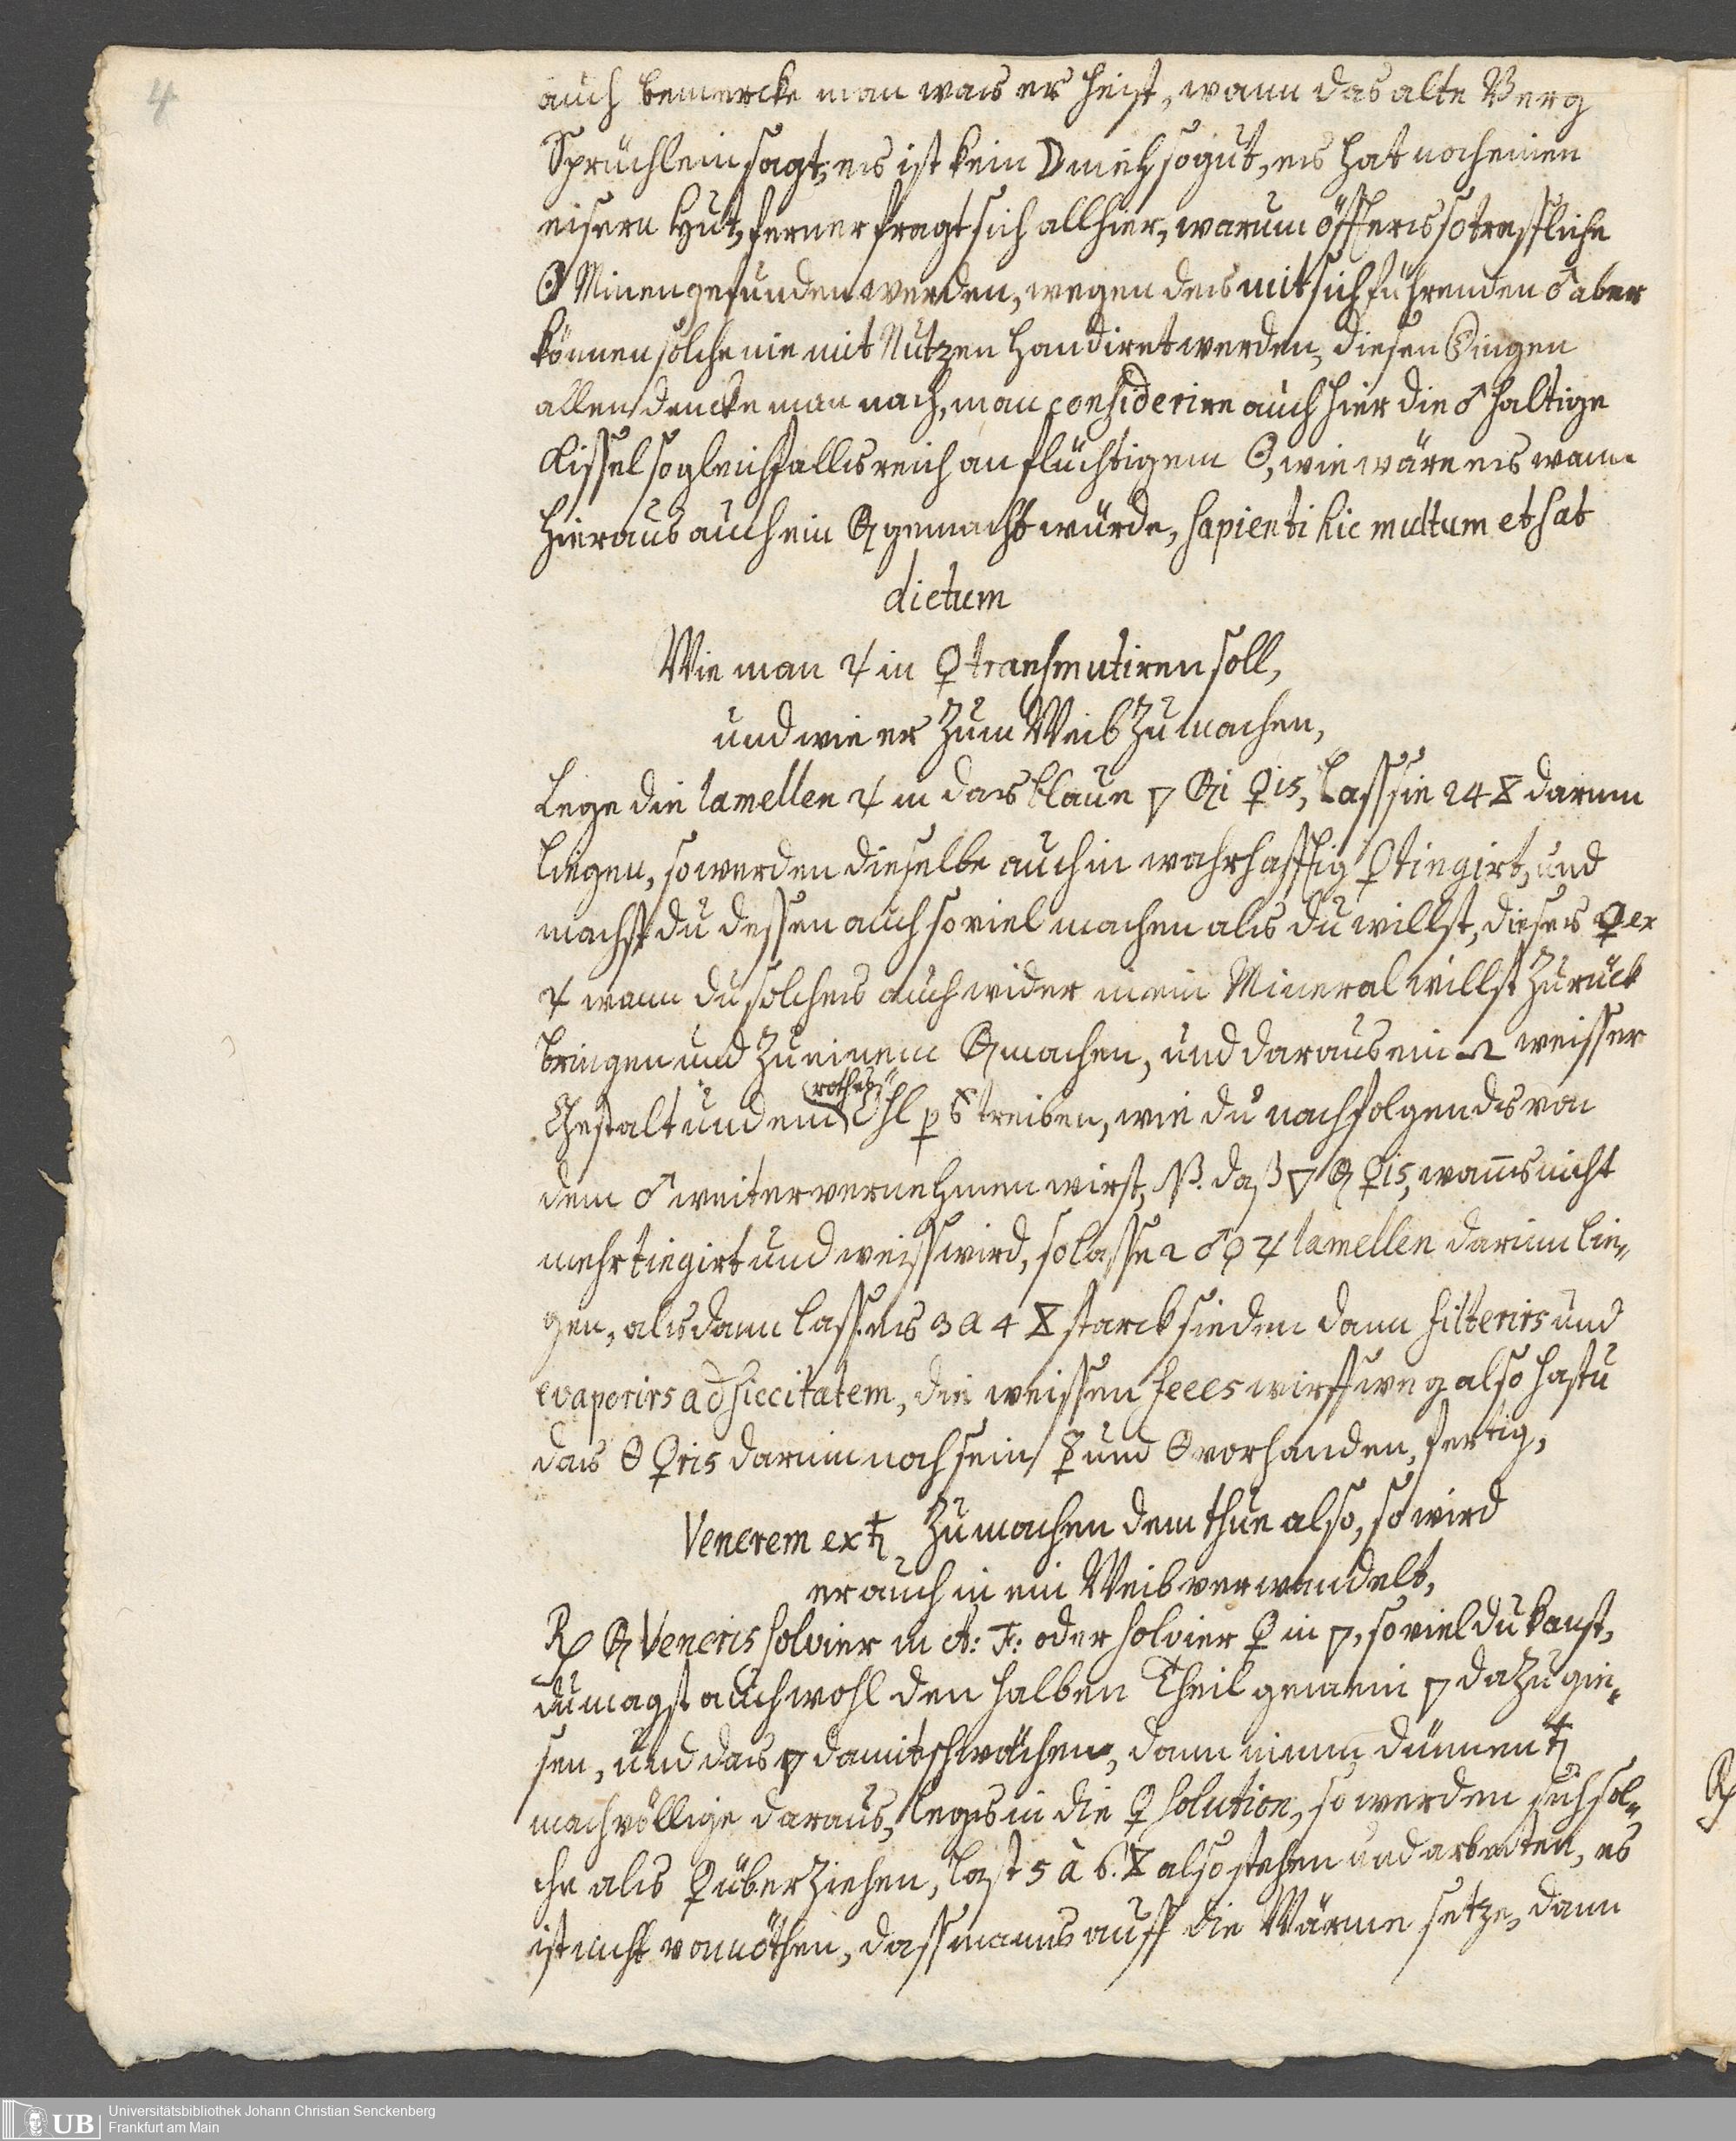 4
auch bemercke man was es heist, wann das alte Berg
Sprüchlein sagt, es ist kein Ding so gut, es hat noch einen
eisern Hut, ferner fragt sich allhier, warum öffters so treffliche
☉ Minen gefunden werden, wegen des mit sich führenden ♂ aber
können solche nie mit Nutzen handiret werden, diesen Dingen
allen dencke man nach, man considerire auch hier die ♂ haltige
Kissel so gleichfalls reich an flüchtigem ☉, wie wäre es wann
hieraus auch ein gemacht würde, sapienti hic multum et sat
dictum
Wie man ♃ in ♀ transmutiren soll,
und wie er zum Weib zu machen,
Lege die lamellen ♃ in das blaue ▽ ♀is, lass sie 24 darinn
liegen, so werden dieselbe auch in wahrhafftig ♀ tingirt, und
machst du dessen auch so viel machen als du willst, dieses ♀ ex
♃ wann du solches auch wider in ein Mineral willst zurück
bringen und zu einem machen, und daraus ein weisser
Gestalt und ein rothes Öhl p treiben, wie du nachfolgends von
dem ♂ weiter vernehmen wirst, NB. daß ▽ ♀is, wanns nicht
mehr tingirt und weiß wird, so lasse ♂ ♀ ♃ lamellen darinn lie„
gen, alsdann lass es 3 a 4 starck sieden dann filterirs und
evaporirs ad siccitatem, die weissen feces wirff weg also hastu
das ♀ris darinn noch sein und vorhanden, fertig,
Venerem ex ♄ zu machen dem thue also, so wird
er auch in ein Weib verwandelt,
Rp Veneris solvier in A: F: oder solvier ♀ in ▽, so viel du kanst,
du magst auch wohl den halben Theil gemein ▽ dazu gie„
sen, und das ▽ damit schwächen, dann nimm dünnen ♄
mach völlige daraus, legs in die ♀ solution, so werden sich sol„
che als ♀ überziehen, last 5 à 6. also stehen und arbeiten, es
ist nicht vonnöthen, dass mans auff die Wärme setze, dann
Rp
UB
Universitätsbibliothek Johann Christian Senckenberg
Frankfurt am Main